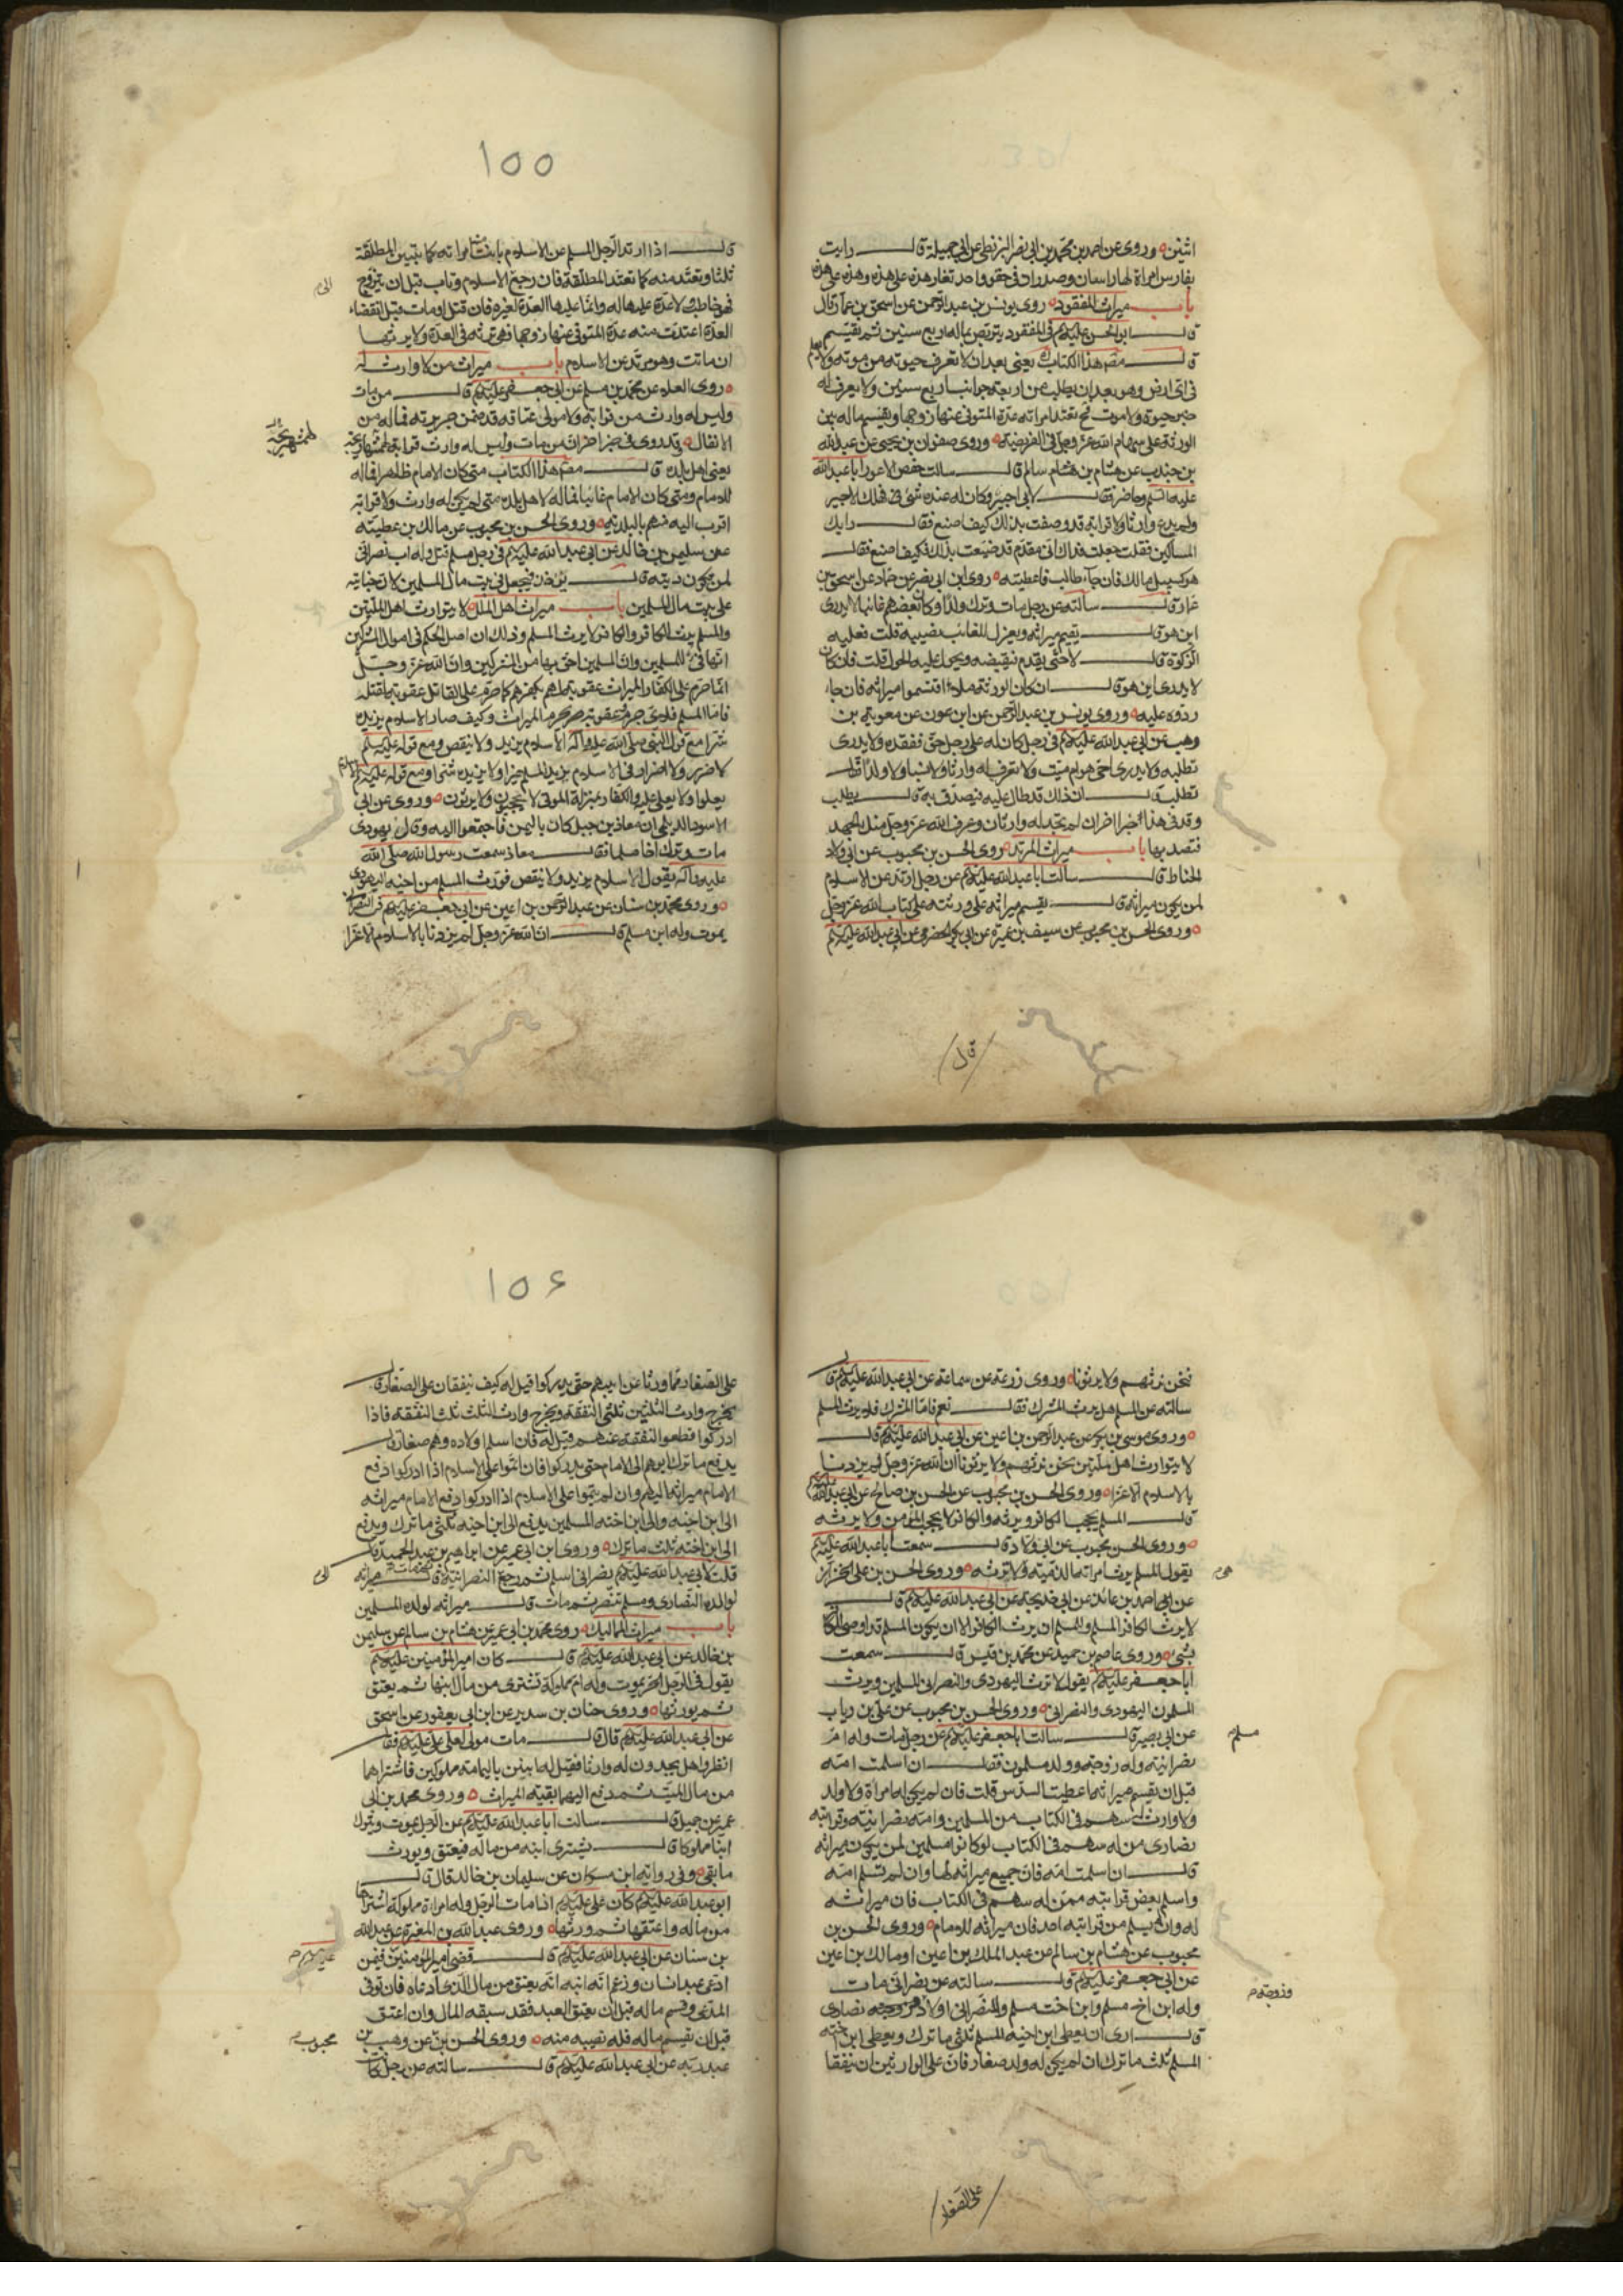 اثنين وروى عن احمد بن محمد بن ابى نصر البزنطى عن ابى جميلة قال رايت
بفارس امراة لها راسان وصدران فى حقو واحد تغار هذه على هذه وهذه على هذه
باب ميراث المفقود روى يونس بن عبد الرحمن عن اسحق بن عمار قال
قال ابو الحسن عليه السلم فى المفقود يتربص بماله اربع سنين ثم يقسم
قال مصنف هذا الكتاب يعنى بعد ان لا تعرف حيوته من موته ولا يعلم
فى اى ارض وهو بعد ان يطلب من اربعة جوانب اربع سنين ولا يعرف له
خبر حيوة ولا موت فح تعتد امراته عدة المتوفى عنها زوجها ويقسم ماله بين
الورثة على سهام الله عز وجل فى الفريضة وروى صفوان بن يحيى عن عبد الله
بن جندب عن هشام بن سالم قال سالت حفص الاعور ابا عبد الله
عليه السلم وحاضر فقال لابى اجير وكان له عنده شئ فهلك الاجير
ولم يدع وارثا ولا قرابة قد وضقت بذلك كيف اصنع فقال رايك
المساكين فقلت جعلت فداك انى مقدم قد ضيعت بذلك فكيف اصنع فقال
هو كسبيل مالك فان جاء طالب فاعطيته روى ابن ابى نصر عن حماد عن اسحق بن
عمار قال سالته عن رجل مات وترك ولدا وكان بعضهم غائبا لا يدرى
اين هو قال يقسم ميراثه ويعزل للغائب نصيبه قلت فعليه
الزكوة قال لا حتى يقدم فيقبضه ويحول عليه الحول قلت فان كان
لا يدرى اين هو قال ان كان الورثة ملاء اقتسموا ميراثه فان جاء
ردوه عليه وروى يونس بن عبد الرحمن عن ابن عون عن معوية بن
وهب عن ابى عبد الله عليه السلم فى رجل كان له على رجل حق ففقده ولا يدرى
يطلبه ولا يدرى احى هو ام ميت ولا يعرف له وارثا ولا نسبا ولا ولدا قال
يطلب قال ان ذلك قد طال عليه فيصدق به قال يطلب
وقد فى هذا خبر اخر ان لم تجد له وارثا وعرف الله عز وجل منك الجهد
فتصدق بها باب ميراث المرتد روى الحسن بن محبوب عن ابى ولاد
الحناط قال سالت ابا عبد الله عليه السلم عن رجل ارتد عن الاسلام
لمن يكون ميراثه قال يقسم ميراثه على ورثته على كتاب الله عز وجل
وروى الحسن بن محبوب عن سيف بن عميرة عن ابى بكر الحضرمى عن ابى عبد الله عليه السلم
قال
١٥٥
قال اذا ارتد الرجل المسلم عن الاسلام بانت منه امراته كما تبين المطلقة
ثلثا وتعتد منه كما تعتد المطلقة فان رجع الاسلام وتاب قبل ان يتزوج
الى م
فهو خاطب ولا عدة عليها له وانما عليها العدة لغيره فان قتل او مات قبل انقضاء
العدة اعتدت منه عدة المتوفى عنها زوجها فهى ترثه فى العدة ولا يرثها
ان ماتت وهو مرتد عن الاسلام باب ميراث من لا وارث له
روى العلا عن محمد بن مسلم عن ابى جعفر عليه السلم قال من مات
وليس له وارث من قرابته ولا مولى عتاقه قد ضمن جريرته فماله من
الانفال وقد روى فى خبر اخر ان من مات وليس له وارث قرابة لهمشهريجه
لهمشهريجه
يعنى اهل بلده قال مصنف هذا الكتاب متى كان الامام ظاهرا فماله
للامام ومتى كان الامام غائبا فماله لاهل بلده متى لم يكن له وارث ولا قرابة
اقرب اليه منهم بالبلدية وروى الحسن بن محبوب عن مالك بن عطية
عن سليمن بن خالد عن ابى عبد الله عليه السلم فى رجل مسلم قتل وله اب نصرانى
لمن يكون ديته قال يؤخذ فيجعل فى بيت مال المسلمين لان جنايته
على بيت مال المسلمين باب ميراث اهل الملل لا يتوارث اهل الملتين
والمسلم يرث الكافر والكافر لا يرث المسلم وذلك ان اصل الحكم فى اموال المشركين
انها فئ للمسلمين وان المسلمين احق بها من المشركين وان الله عز وجل
انما حرم على الكفار الميراث عقوبة لهم بكفرهم كما حرم على القاتل عقوبة لقتله
فاما المسلم فلاى جرم وعقوبة يحرم الميراث وكيف صار الاسلام يزيده
شرا مع قول النبى صلى الله عليه واله الاسلام يزيد ولا ينقص ومع قوله عليه السلم
لا ضرر ولا اضرار فى الاسلام يزيد المسلم خيرا ولا يزيده شرا ومع قوله عليه السلم الاسلام
يعلو ولا يعلى عليه والكفار بمنزلة الموتى لا يحجبون ولا يرثون وروى عن ابى
الاسود الديلمى ان معاذ بن جبل كان باليمن فاجتمعوا اليه وقالوا يهودى
مات وترك اخا مسلما فقال معاذ سمعت رسول الله صلى الله
عليه واله يقول الاسلام يزيد ولا ينقص فورث المسلم من اخيه اليهودى
وروى محمد بن سنان عن عبد الرحمن بن اعين عن ابى جعفر عليه السلم فى النصرانى
يموت وله ابن مسلم قال ان الله عز وجل لم يزدنا بالاسلام الا عزا
فنحن نرثهم ولا يرثونا وروى زرعة عن سماعة عن ابى عبد الله عليه السلم قال
سالته عن المسلم هل يرث المشرك فقال نعم فاما المشرك فلا يرث المسلم
وروى موسى بن بكر عن عبد الرحمن بن اعين عن ابى عبد الله عليه السلم قال
لا يتوارث اهل ملتين نحن نرثهم ولا يرثونا ان الله عز وجل لم يزدنا
بالاسلام الا عزا وروى الحسن بن محبوب عن الحسن بن صالح عن ابى عبد الله عليه السلم
قال المسلم يحجب الكافر ويرثه والكافر لا يحجب المؤمن ولا يرثه
وروى الحسن بن محبوب عن ابى ولاد قال سمعت ابا عبد الله عليه السلم
يقول المسلم يرث امراته الذمية ولا ترثه وروى الحسن بن على الخزاز
هى م
عن احمد بن عائذ عن ابى خديجة عن ابى عبد الله عليه السلم قال
لا يرث الكافر المسلم وللمسلم ان يرث الكافر الا ان يكون المسلم قد اوصى للكافر
بشئ وروى عاصم بن حميد عن محمد بن قيس قال سمعت
ابا جعفر عليه السلم يقول لا يرث اليهودى والنصرانى المسلمين ويرث
المسلمون اليهودى والنصرانى وروى الحسن بن محبوب عن على بن رياب
عن ابى بصير قال سالت ابا جعفر عليه السلم عن رجل مات وله ام
مسلم
نصرانية وله زوجة وولد مسلمون فقال ان اسلمت امه
قبل ان يقسم ميراثه اعطيت السدس قلت فان لم يكن له امراة ولا ولد
ولا وارث له سهم فى الكتاب من المسلمين وامه نصرانية وقرابته
نصارى من له سهم فى الكتاب لو كانوا مسلمين لمن يكون ميراثه
قال ان اسلمت امه فان جميع ميراثه لها وان لم تسلم امه
واسلم بعض قرابته ممن له سهم فى الكتاب فان ميراثه
له وان لم يسلم من قرابته احد فان ميراثه للامام وروى الحسن بن
محبوب عن هشام بن سالم عن عبد الملك بن اعين او مالك بن اعين
عن ابى جعفر عليه السلم قال سالته عن نصرانى مات
وزوجة م
وله ابن اخ مسلم وابن اخت مسلم وللنصرانى اولاد وزوجة نصارى
قال ارى ان يعطى ابن اخيه المسلم ثلثى ما ترك ويعطى ابن اخته
المسلم ثلث ما ترك ان لم يكن له ولد صغار فان على الوارثين ان ينفقا
على الصغار
١٥٦
على الصغار مما ورثا عن ابيهم حتى يدركوا قيل له كيف ينفقان على الصغار قال
يخرج وارث الثلثين ثلثى النفقة ويخرج وارث الثلث ثلث النفقة فاذا
ادركوا قطعوا النفقة عنهم قيل له فان اسلم اولاده وهم صغار قال
يدفع ما ترك ابوهم الى الامام حتى يدركوا فان اتموا على الاسلام اذا ادركوا دفع
الامام ميراثه اليهم وان لم يتموا على الاسلام اذا ادركوا دفع الامام ميراثه
الى ابن اخيه والى ابن اخته المسلمين يدفع الى ابن اخيه ثلثى ما ترك ويدفع
الى ابن اخته ثلث ما ترك وروى ابن ابى عمير عن ابراهيم بن عبد الحميد قال
قلت لابى عبد الله عليه السلم نصرانى اسلم ثم رجع النصرانية ثم مات قال ميراثه
الى م
لولده النصارى ومسلم تنصر ثم مات قال ميراثه لولده المسلمين
باب ميراث المماليك روى محمد بن ابى عمير عن هشام بن سالم عن سليمن
بن خالد عن ابى عبد الله عليه السلم قال كان امير المؤمنين عليه السلم
يقول فى الرجل الحر يموت وله ام مملوكة تشترى من مال ابنها ثم يعتق
ثم يورثها وروى حنان بن سدير عن ابن ابى يعفور عن اسحق
عن ابى عبد الله عليه السلم قال مات مولى لعلى عليه السلم فقال
انظروا هل تجدون له وارثا فقيل له ابنتين باليمامة مملوكتين فاشتراهما
من مال الميت ثم دفع اليهما بقية الميراث وروى محمد بن ابى
عمير عن جميل قال سالت ابا عبد الله عليه السلم عن الرجل يموت ويترك
ابنا مملوكا قال يشترى ابنه من ماله فيعتق ويورث
ما بقى وفى رواية ابن مسكان عن سليمان بن خالد قال قال
ابو عبد الله عليه السلم كان على عليه السلم اذا مات الرجل وله امراة مملوكة اشتراها
من ماله واعتقها ثم ورثها وروى عبد الله بن المغيرة عن عبد الله
بن سنان عن ابى عبد الله عليه السلم قال قضى امير المؤمنين فيمن
عليه السلم م
ادعى عبد انسان وزعم انه ابنه انه يعتق من مال الذى ادعاه فان توفى
المدعى وقسم ماله قبل ان يعتق العبد فقد سبقه المال وان اعتق
قبل ان يقسم ماله فله نصيبه منه وروى الحسن بن عن وهب بن
محبوب م
عبد ربه عن ابى عبد الله عليه السلم قال سالته عن رجل كانت